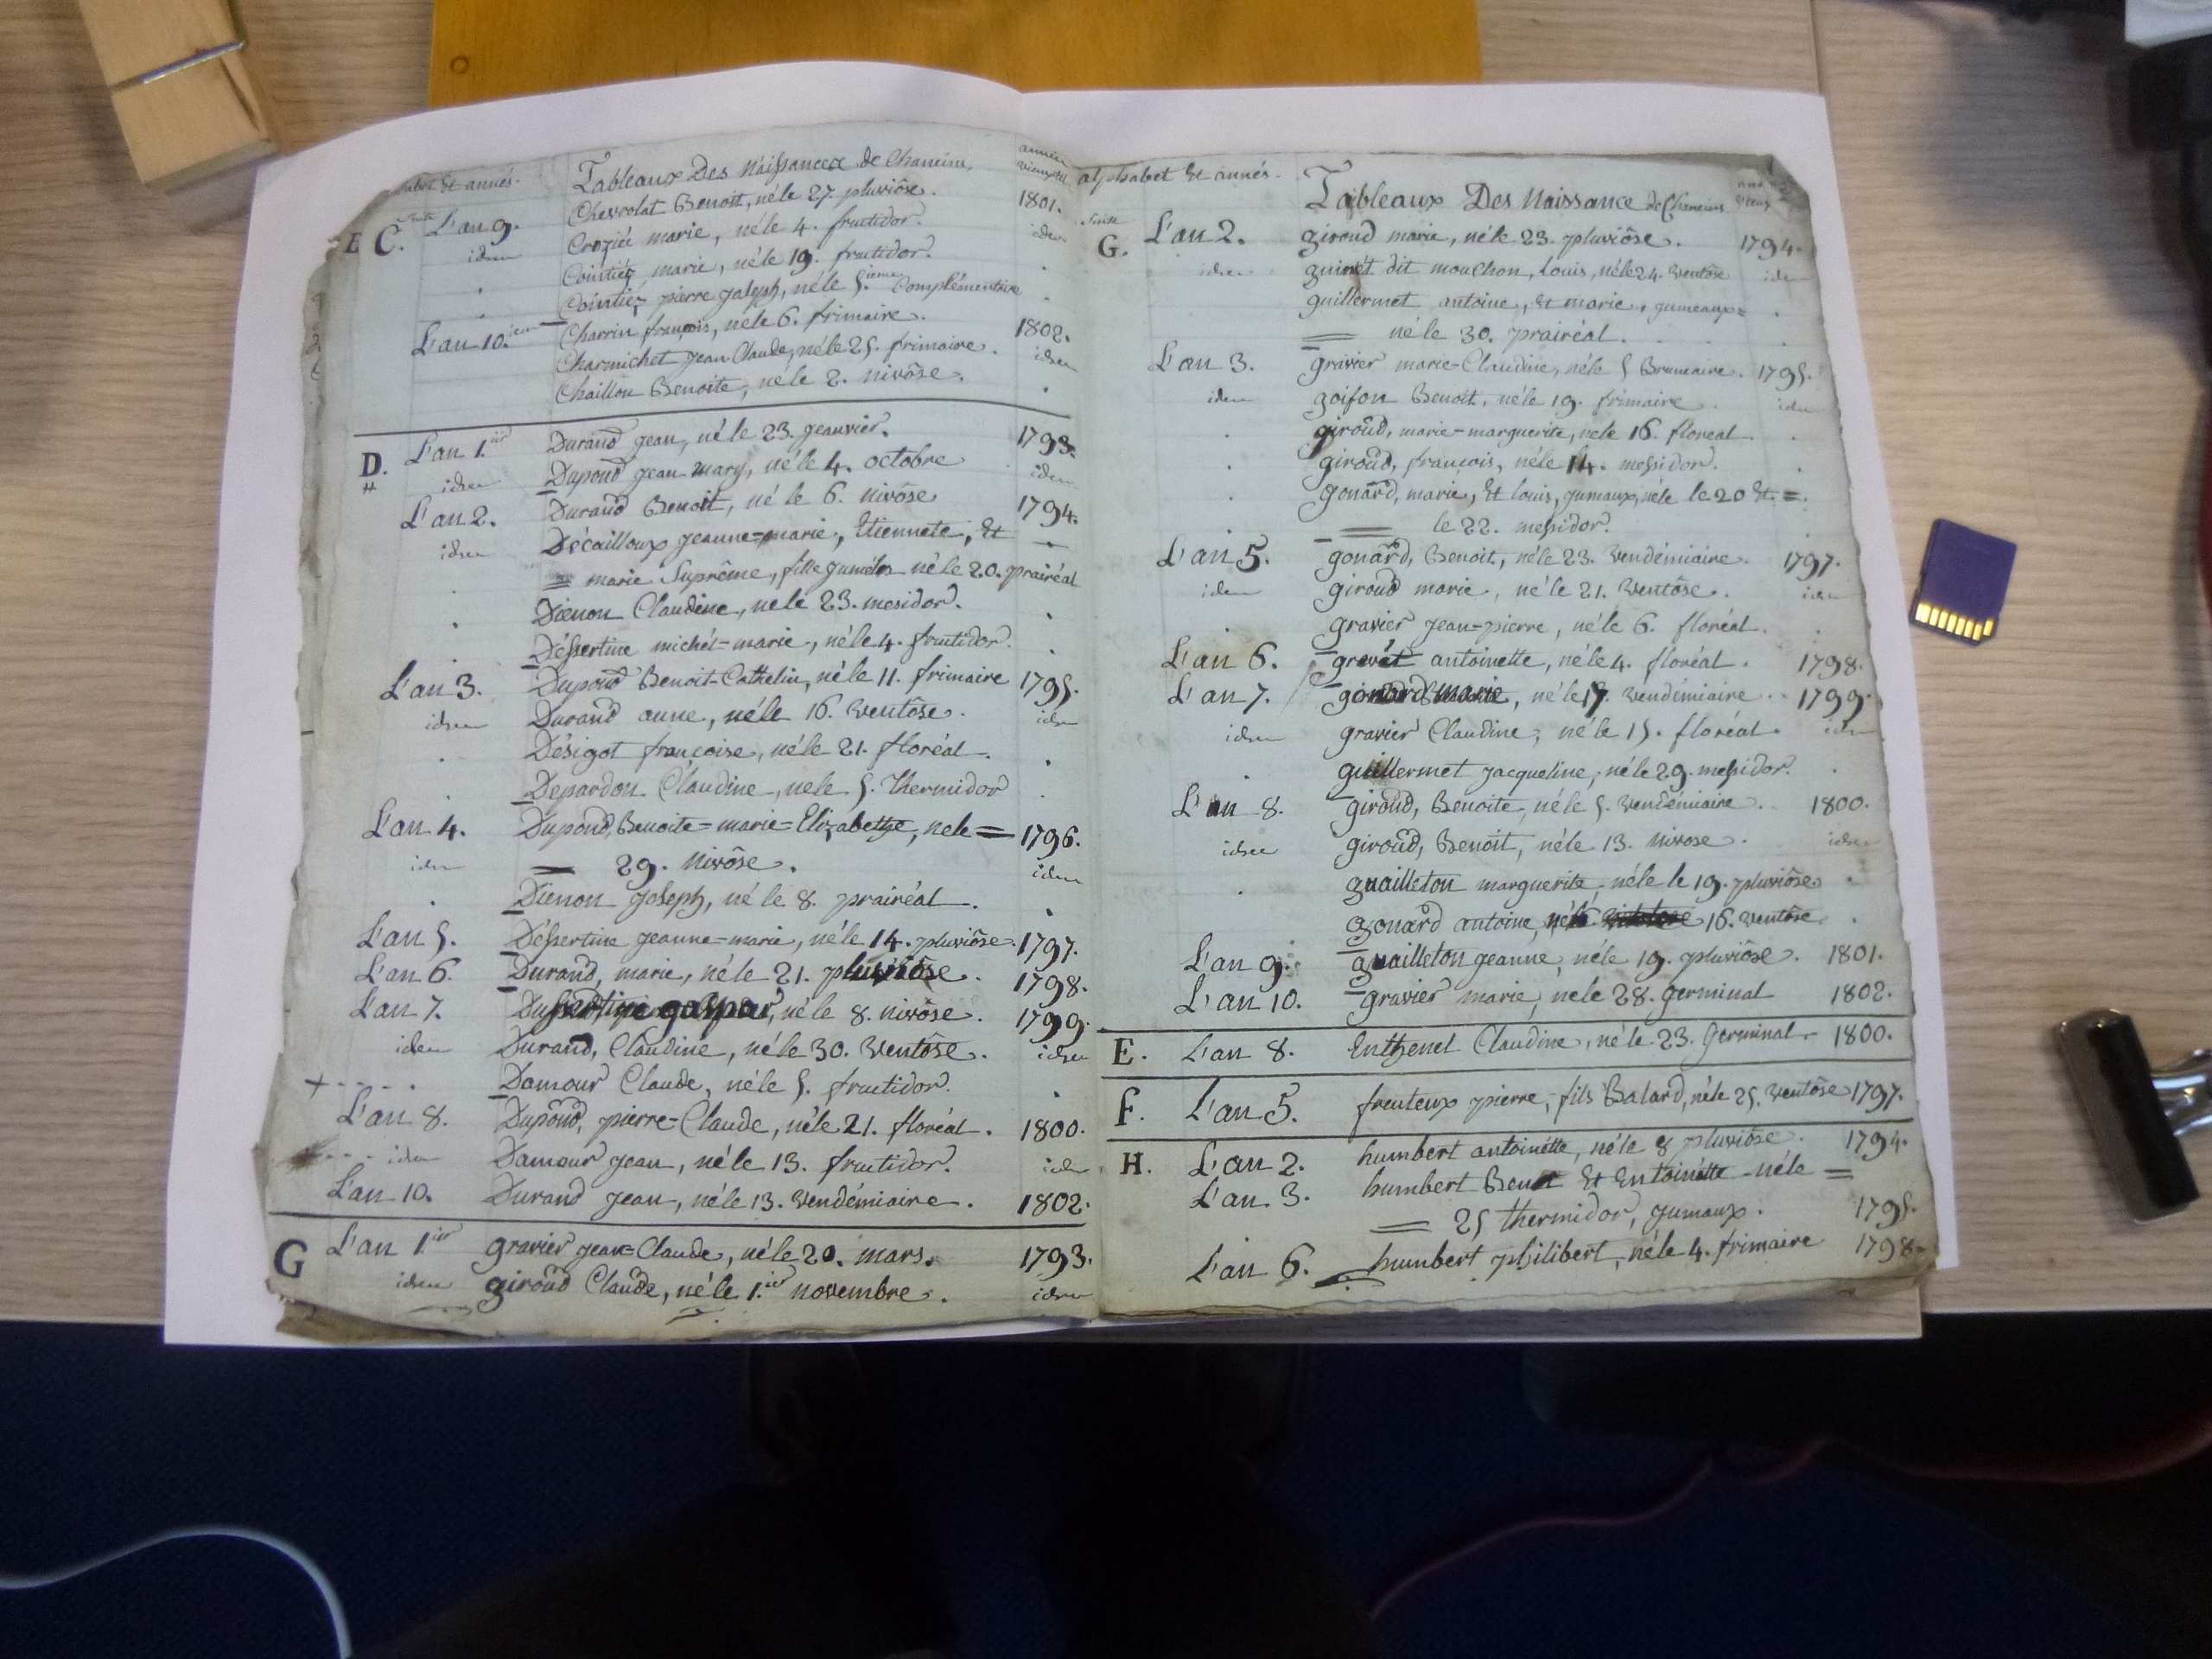 alphabet Et annés. Tableaux Des Naissances de Chaneins, années vieux stil
Suite
C. L'an 9. Chevrolat Benoit, né le 27. pluviôse. 1801.
idem Crozié marie, né le 4. fructidor. idem
Cointiéz marie, né le 19. fructidor.
Cointiéz pierre joseph, né le 5.ieme Complémentaire
L'an 10.ieme Charrin françois, né le 6. frimaire. 1802.
Charmichet jean Claude, né le 25. frimaire. idem
Chaillou Benoite, né le 2. nivôse.
D. L'an 1.ier Durand jean, né le 23. jeanvier. 1793.
idem Dupond jean mary, né le 4. octobre idem
L'an 2. Durand Benoit, né le 6. nivôse 1794.
idem Décailloux jeanne=marie, Etiennete, Et
= marie Suprême, fille jumélés né le 20. prairéal
Dienon Claudine, né le 23. mesidor.
Déssertine michél=marie, né le 4. fructidor.
L'an 3. Dupond Benoit-Cathelin, né le 11. frimaire 1795.
idem Durand anne, né le 16. ventôse. idem
Désigot françoise, né le 21. floréal.
Depardon Claudine, né le 5. thermidor
L'an 4. Dupond, Benoite=marie=Elizabethe, né le = 1796.
idem = 29. nivôse. idem
Dienon joseph, né le 8. prairéal.
L'an 5. Déssertine jeanne=marie, né le 14. pluviôse. 1797.
L'an 6. Durand, marie, né le 21. pluviôse. 1798.
L'an 7. Dussertine gaspar, né le 8. nivôse. 1799.
idem Durand, Claudine, né le 30. ventôse. idem
Damour Claude, né le 5. fructidor.
L'an 8. Dupond, pierre=Claude, né le 21. floréal. 1800.
idem Damour jean, né le 13. fructidor. idem
L'an 10. Durand jean, né le 13. vendémiaire. 1802.
G L'an 1.ier gravier jean=Claude, né le 20. mars. 1793.
idem giroud Claude, né le 1.ier novembre. idem
alphabet Et annés. Tableaux Des Naissance de Chaneins
Suite
G. L'an 2. giroud marie, né le 23. pluviôse. 1794.
idem guinét dit mouchon, Louis, né le 24. ventôse idem
guillermet antoine, Et marie, jumeaux=
= né le 30. prairéal.
L'an 3. gravier marie=Claudine, né le 5 Brumaire. 1795.
idem goifon Benoit, né le 19. frimaire. idem
giroud, marie=marguerite, né le 16. floréal.
giroud, françois, né le 14. messidor.
gonard, marie, Et louis, jumaux, né le le 20 Et =
= le 22. messidor.
L'an 5. gonard, Benoit, né le 23. vendémiaire. 1797.
idem giroud marie, né le 21. ventôse. idem
gravier jean=pierre, né le 6. floréal.
L'an 6. grevét antoinette, né le 4. floréal. 1798.
L'an 7. marie, né le 17. vendémiaire. 1799.
idem gravier Claudine, né le 15. floréal. idem
guillermet jacqueline, né le 29. messidor.
L'an 8. giroud, Benoite, né le 5. vendémiaire. 1800.
idem giroud, Benoit, né le 13. nivose. idem
guailleton marguerite, né le le 19. pluviôse.
gonard antoine, né le 16. ventôse
L'an 9. guailleton jeanne, né le 19. pluviôse. 1801.
L'an 10. gravier marie, né le 28. germinal 1802.
E. L'an 8. Enthenet Claudine, né le 23. Germinal. 1800.
F. L'an 5. freuteux pierre, fils Batard, né le 25. ventôse 1797.
H. L'an 2. humbert antoinétte, né le 8 pluviôse. 1794.
L'an 3. humbert Benoit Et Entoinétte né le =
= 25 thermidor, jumaux. 1795.
L'an 6. humbert philibert, né le 4. frimaire 1798.